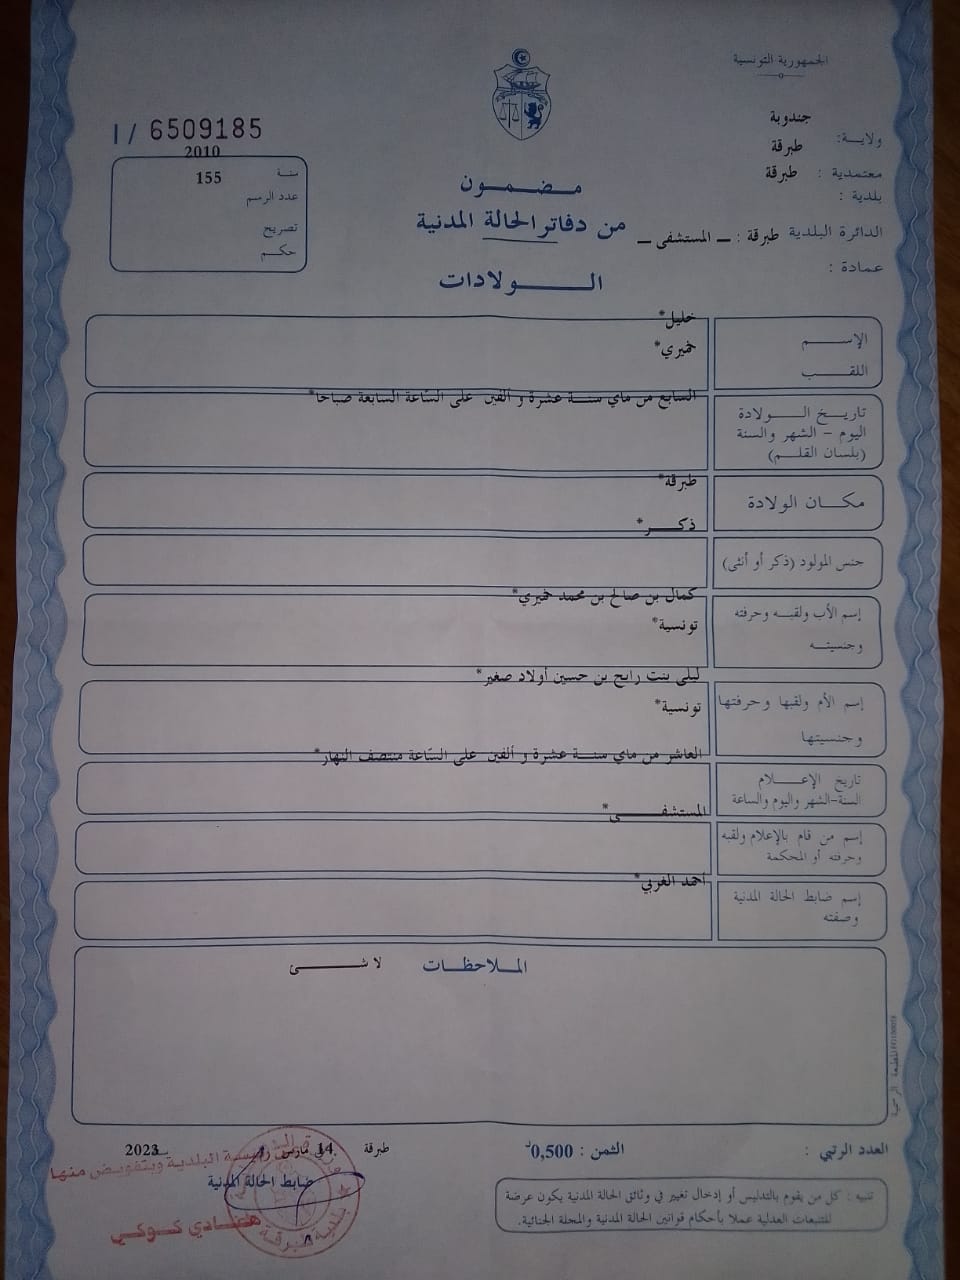 الجمهورية التونسية
ولاية: جندوبة
معتمدية : طبرقة
بلدية : طبرقة
الدائرة البلدية : طبرقة ـ المستشفى ـ
عمادة :
I / 6509185
سنة 2010
عدد الرسم 155
تصريح
حكم
مضمون
من دفاتر الحالة المدنية
الولادات
الإسم خليل*
اللقب خميري*
تاريخ الولادة
اليوم - الشهر والسنة
(بلسان القلم)
السابع من ماي سنة عشرة و ألفين على السّاعة السابعة صباحا*
مكان الولادة طبرقة*
جنس المولود (ذكر أو أنثى) ذكر*
إسم الأب ولقبه وحرفته
وجنسيته
كمال بن صالح بن محمد خميري*
تونسية*
إسم الأم ولقبها وحرفتها
وجنسيتها
ليلى بنت رابح بن حسين أولاد صغير*
تونسية*
تاريخ الإعلام
السنة-الشهر واليوم والساعة
العاشر من ماي سنة عشرة و ألفين على السّاعة منتصف النهار*
إسم من قام بالإعلام ولقبه
وحرفته أو المحكمة
المستشفى*
إسم ضابط الحالة المدنية
وصفته
أحمد الغربي*
الملاحظات لا شئ
العدد الرتبي :
الثمن : 0,500د
طبرقة 14 مارس 2023
رئيسة البلدية وبتفويض منها
ضابط الحالة المدنية
كوكي
تنبيه : كل من يقوم بالتدليس أو إدخال تغيير في وثائق الحالة المدنية يكون عرضة
للتتبعات العدلية عملا بأحكام قوانين الحالة المدنية والمجلة الجنائية.
المطبعة الرسمية